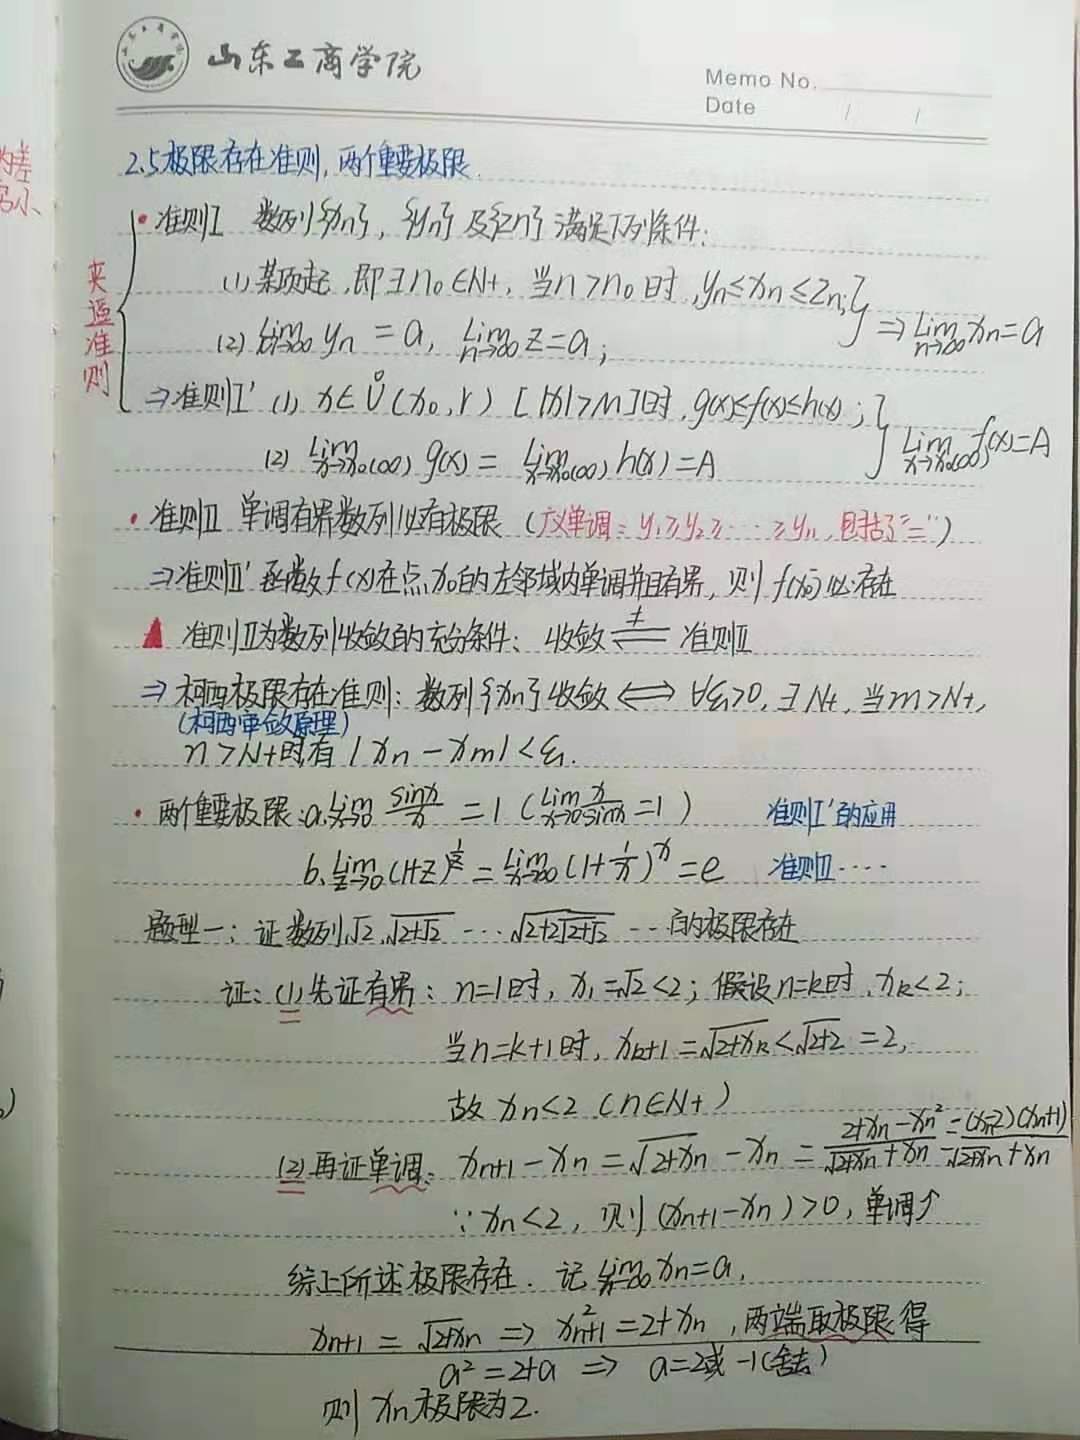 山东工商学院
Memo No.
Date / /
2.5极限存在准则,两个重要极限.
夹逼准则
·准则I 数列{xn},{yn}及{zn}满足下列条件:
(1)某项起,即∃n0∈N+,当n>n0时,yn≤xn≤zn;
(2) lim n→∞ yn=a, lim n→∞ z=a; } ⇒ lim n→∞ xn=a
⇒准则I' (1) x∈Ů(x0,r) [|x|>M]时,g(x)≤f(x)≤h(x);
(2) lim x→x0(∞) g(x)= lim x→x0(∞) h(x)=A } lim x→x0(∞) f(x)=A
·准则II 单调有界数列必有极限 (广义单调:y1≥y2≥……≥yn,包括了"=")
⇒准则II' 函数f(x)在点x0的左邻域内单调并且有界,则f(x0⁻)必存在
▲ 准则II为数列收敛的充分条件: 收敛 ⇌ 准则II
⇒ 柯西极限存在准则:数列{xn}收敛 ⟺ ∀ε>0,∃N+,当m>N+,
(柯西审敛原理)
n>N+时,有|xn-xm|<ε.
·两个重要极限:a. lim x→0 sinx/x =1 (lim x→0 x/sinx=1) 准则I'的应用
b. lim z→0 (1+z)^(1/z) = lim x→∞ (1+1/x)^x =e 准则II····
题型一:证数列√2,√(2+√2)…√(2+2√(2+√2)…的极限存在
证:(1)先证有界:n=1时,x1=√2<2;假设n=k时,xk<2;
当n=k+1时,xk+1=√(2+xk)<√(2+2)=2,
故xn<2 (n∈N+)
(2)再证单调:xn+1-xn=√(2+xn)-xn=(2+xn-xn²)/(√(2+xn)+xn)=-(xn-2)(xn+1)/(√(2+xn)+xn)
∵xn<2, 则(xn+1-xn)>0,单调↑
综上所述极限存在. 记lim n→∞ xn=a,
xn+1=√(2+xn) ⇒ x²n+1=2+xn,两端取极限得
a²=2+a ⇒ a=2或-1(舍去)
则xn极限为2.